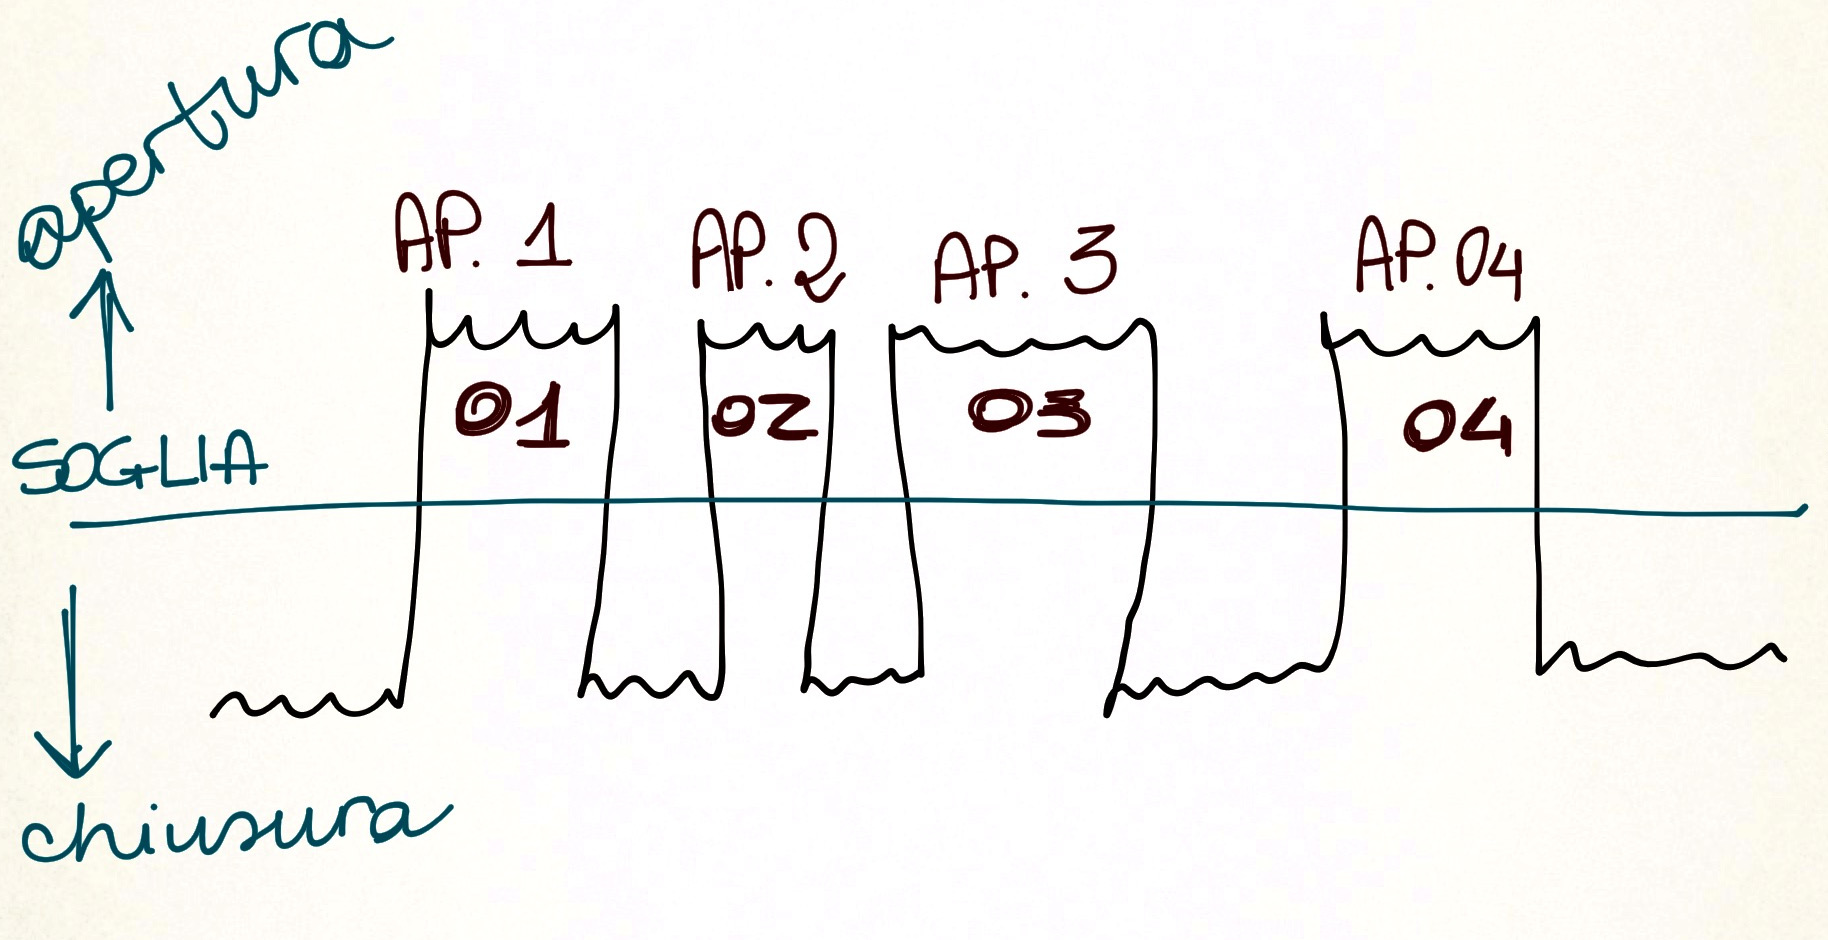 apertura
AP. 1
AP. 2
AP. 3
AP. 04
01
02
03
04
SOGLIA
chiusura